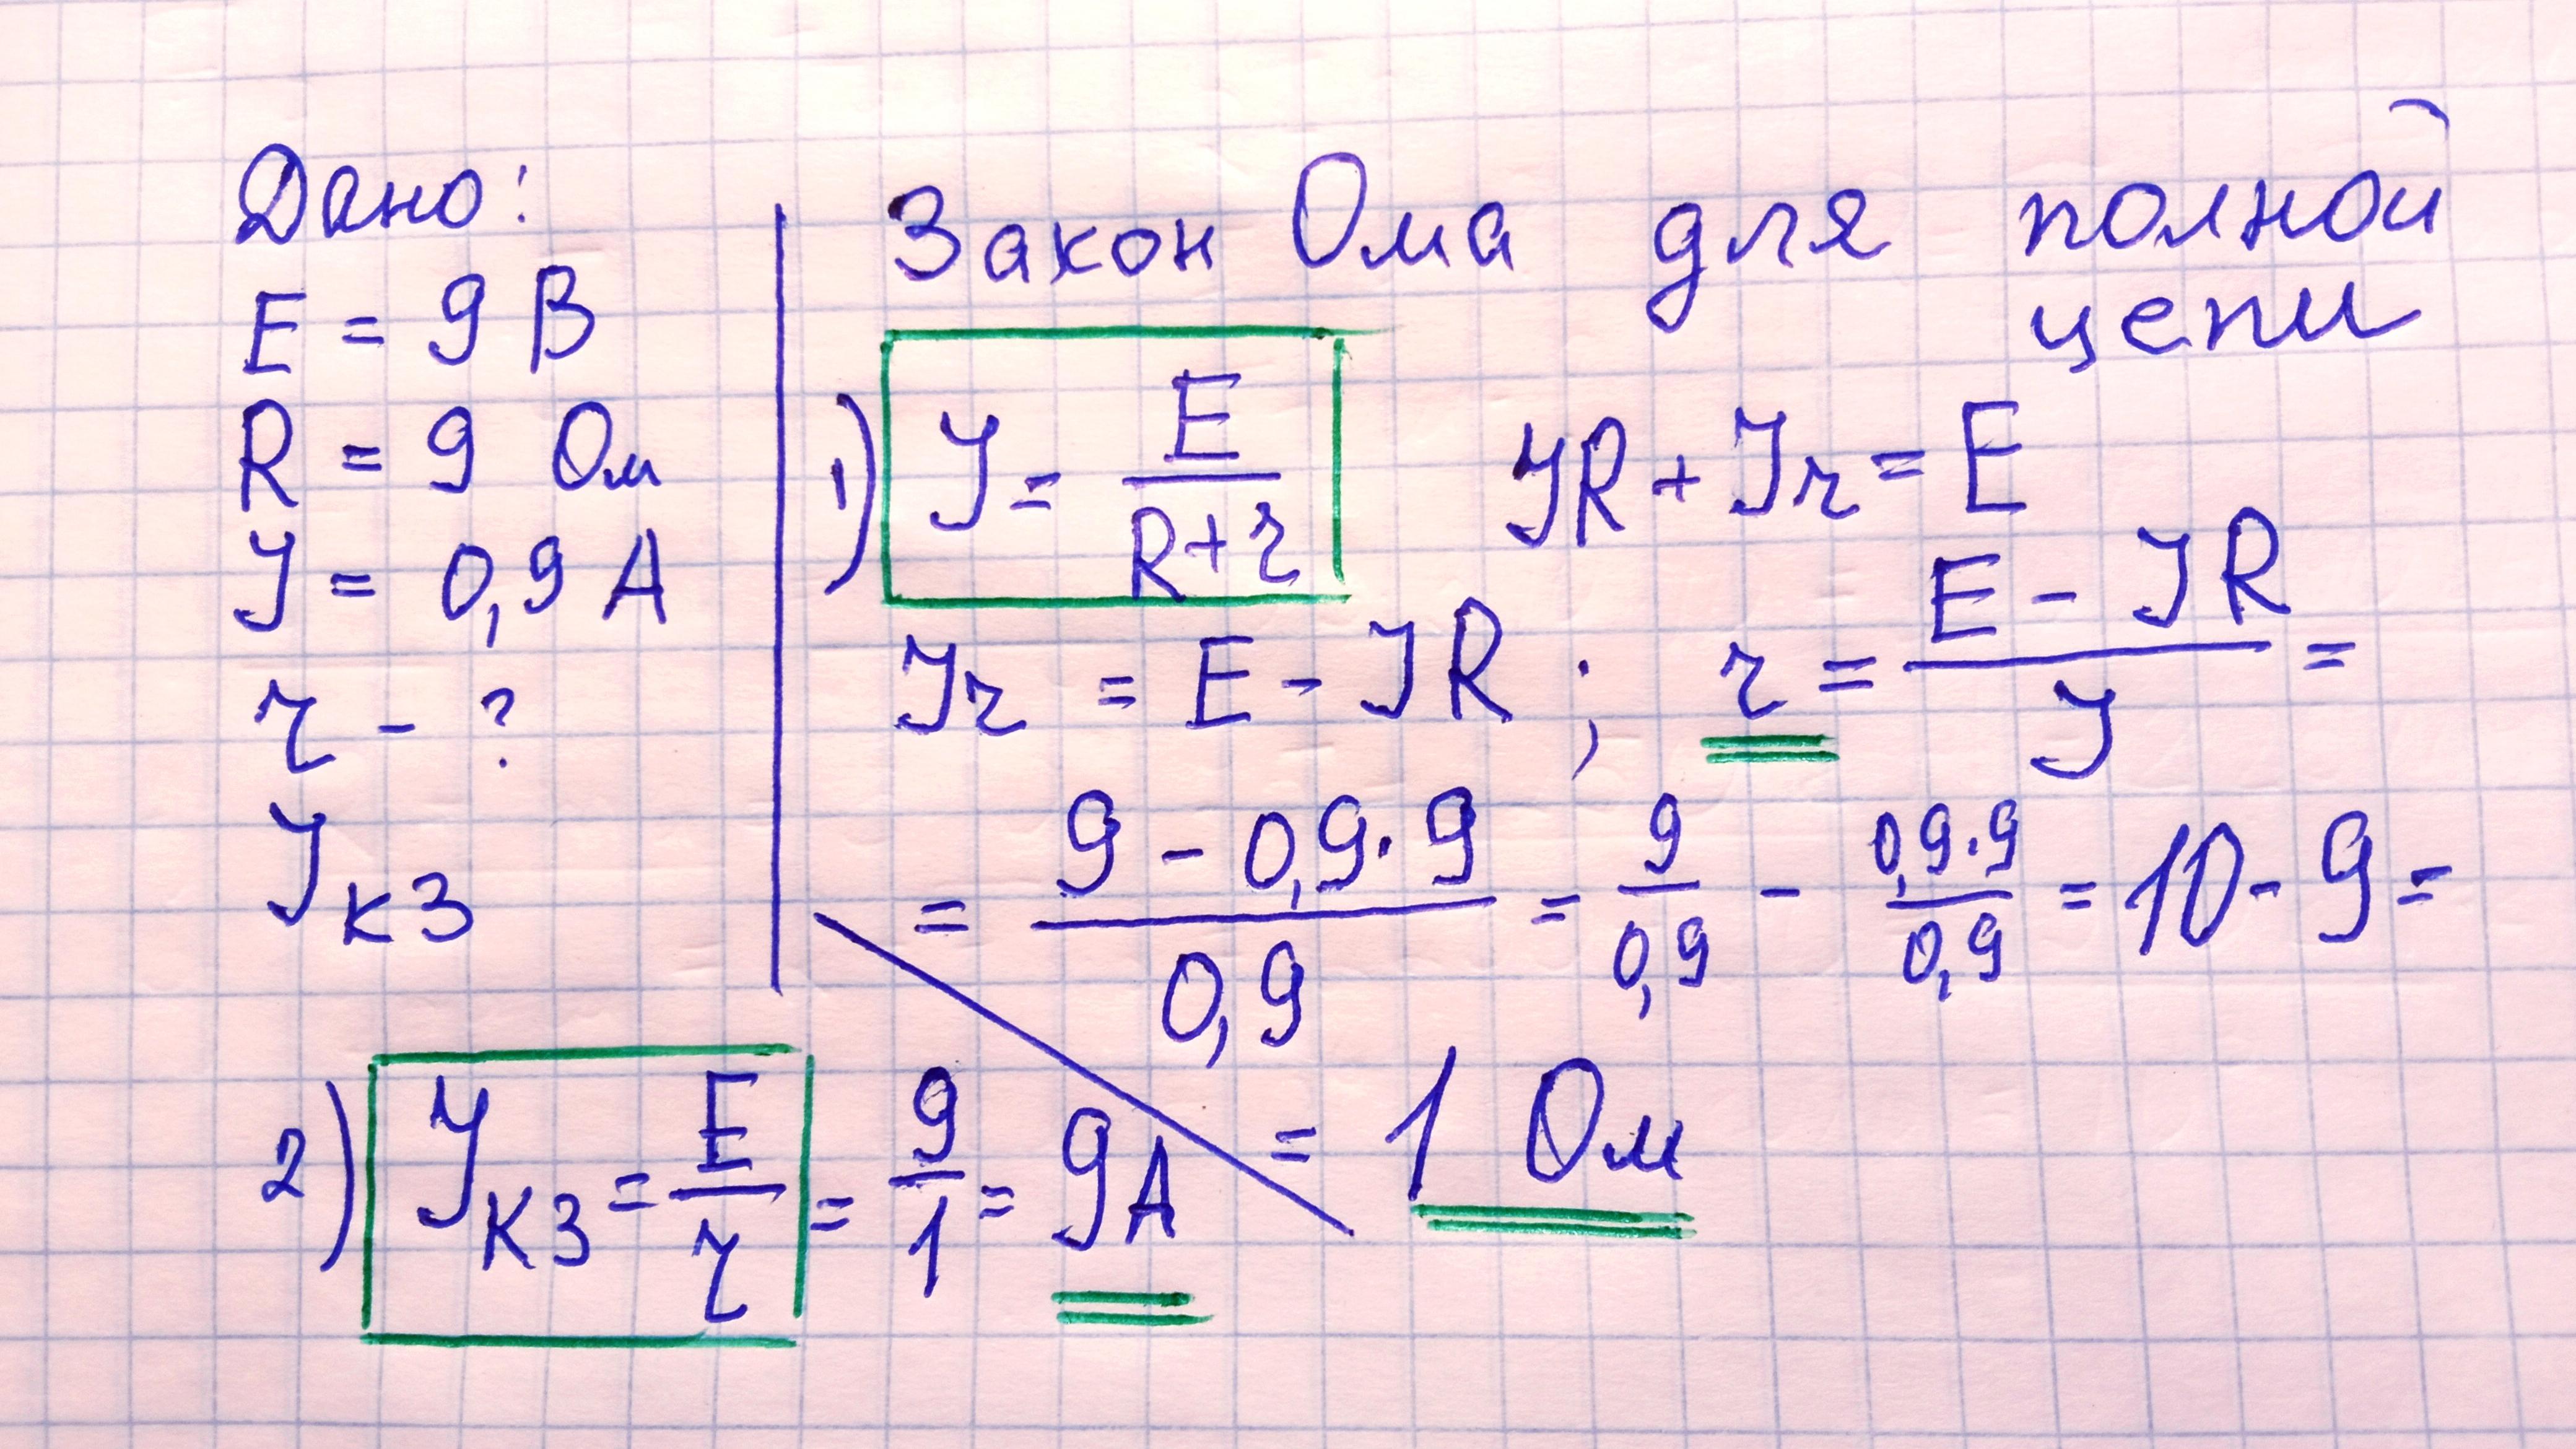 Дано:
E = 9 В
R = 9 Ом
J = 0,9 А
r - ?
J кз
Закон Ома для полной
цепи
1) J = E / (R+r)   JR + Jr = E
Jr = E - JR ; r = (E - JR) / J =
= (9 - 0,9·9) / 0,9 = 9 / 0,9 - 0,9·9 / 0,9 = 10 - 9 =
= 1 Ом
2) J кз = E / r = 9 / 1 = 9А